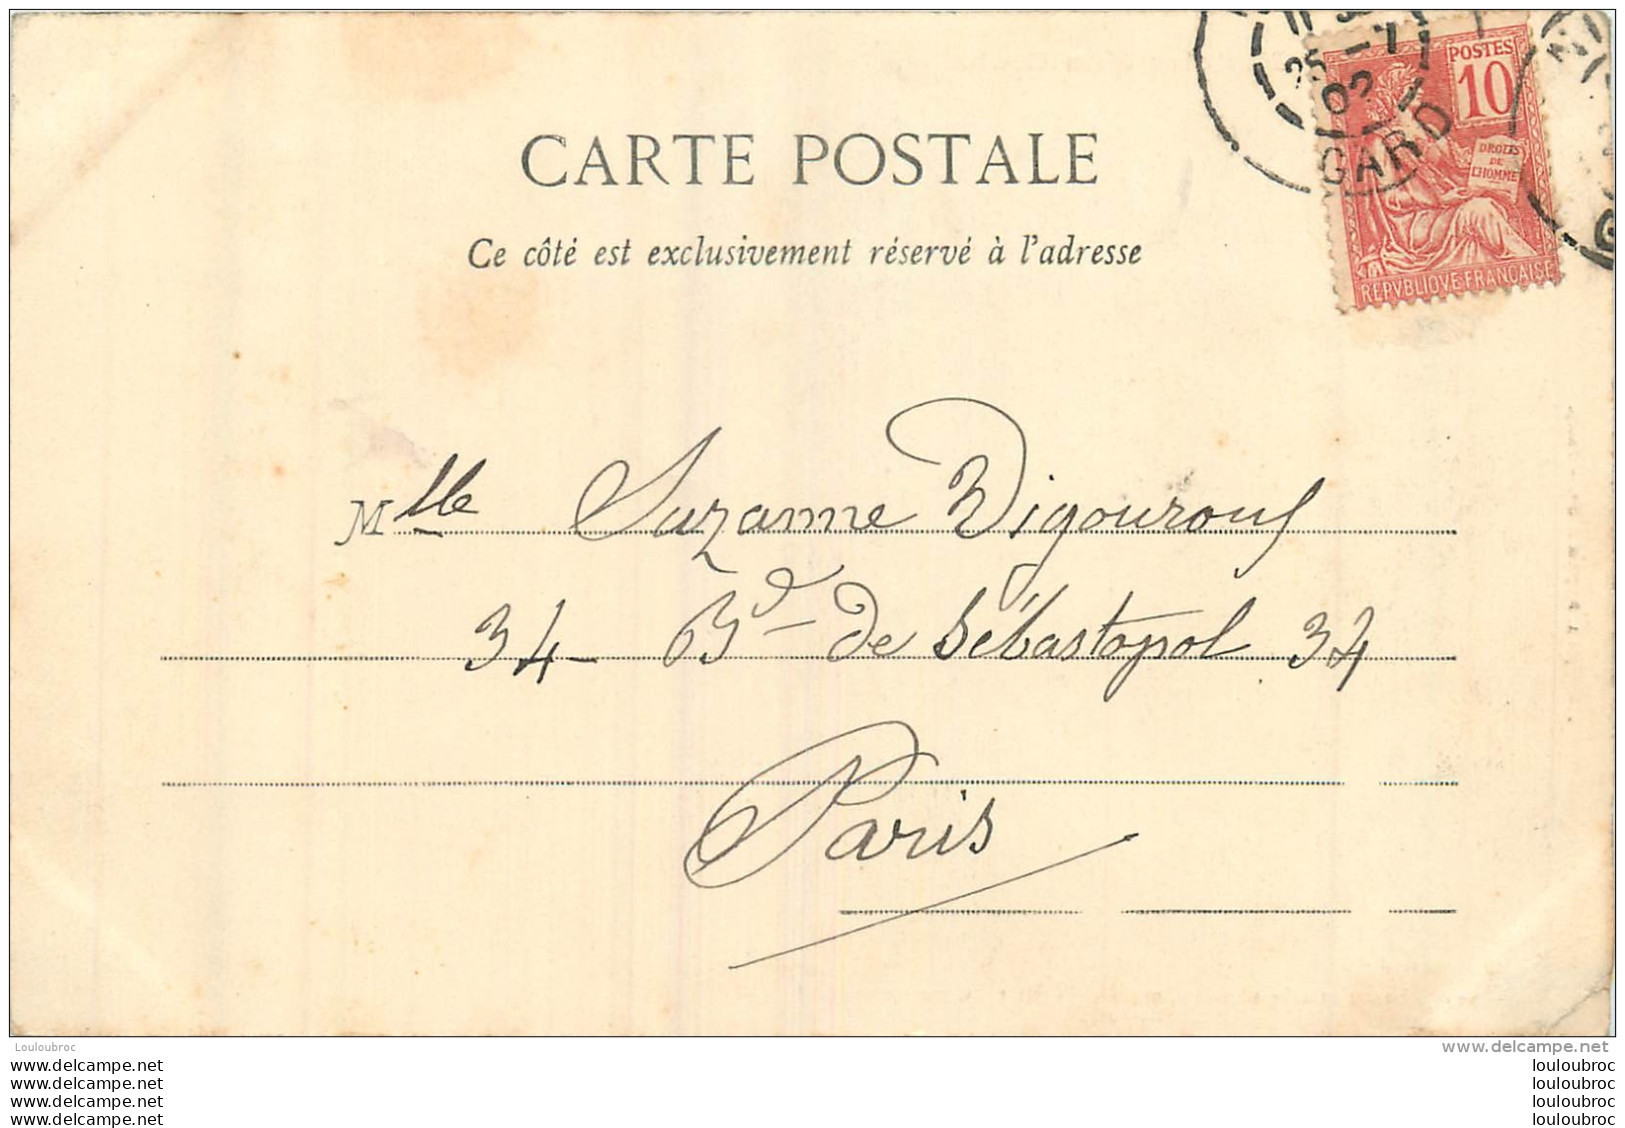 CARTE POSTALE
Ce côté est exclusivement réservé à l'adresse
POSTES
10
DROITS
DE
L'HOMME
REPVBLIQVE FRANÇAISE
GARD
Mlle Suzanne Vigouroux
34 - Bd de Sébastopol 34
Paris
Louloubroc
www.delcampe.net
www.delcampe.net
www.delcampe.net
www.delcampe.net
www.delcampe.net
louloubroc
louloubroc
louloubroc
louloubroc